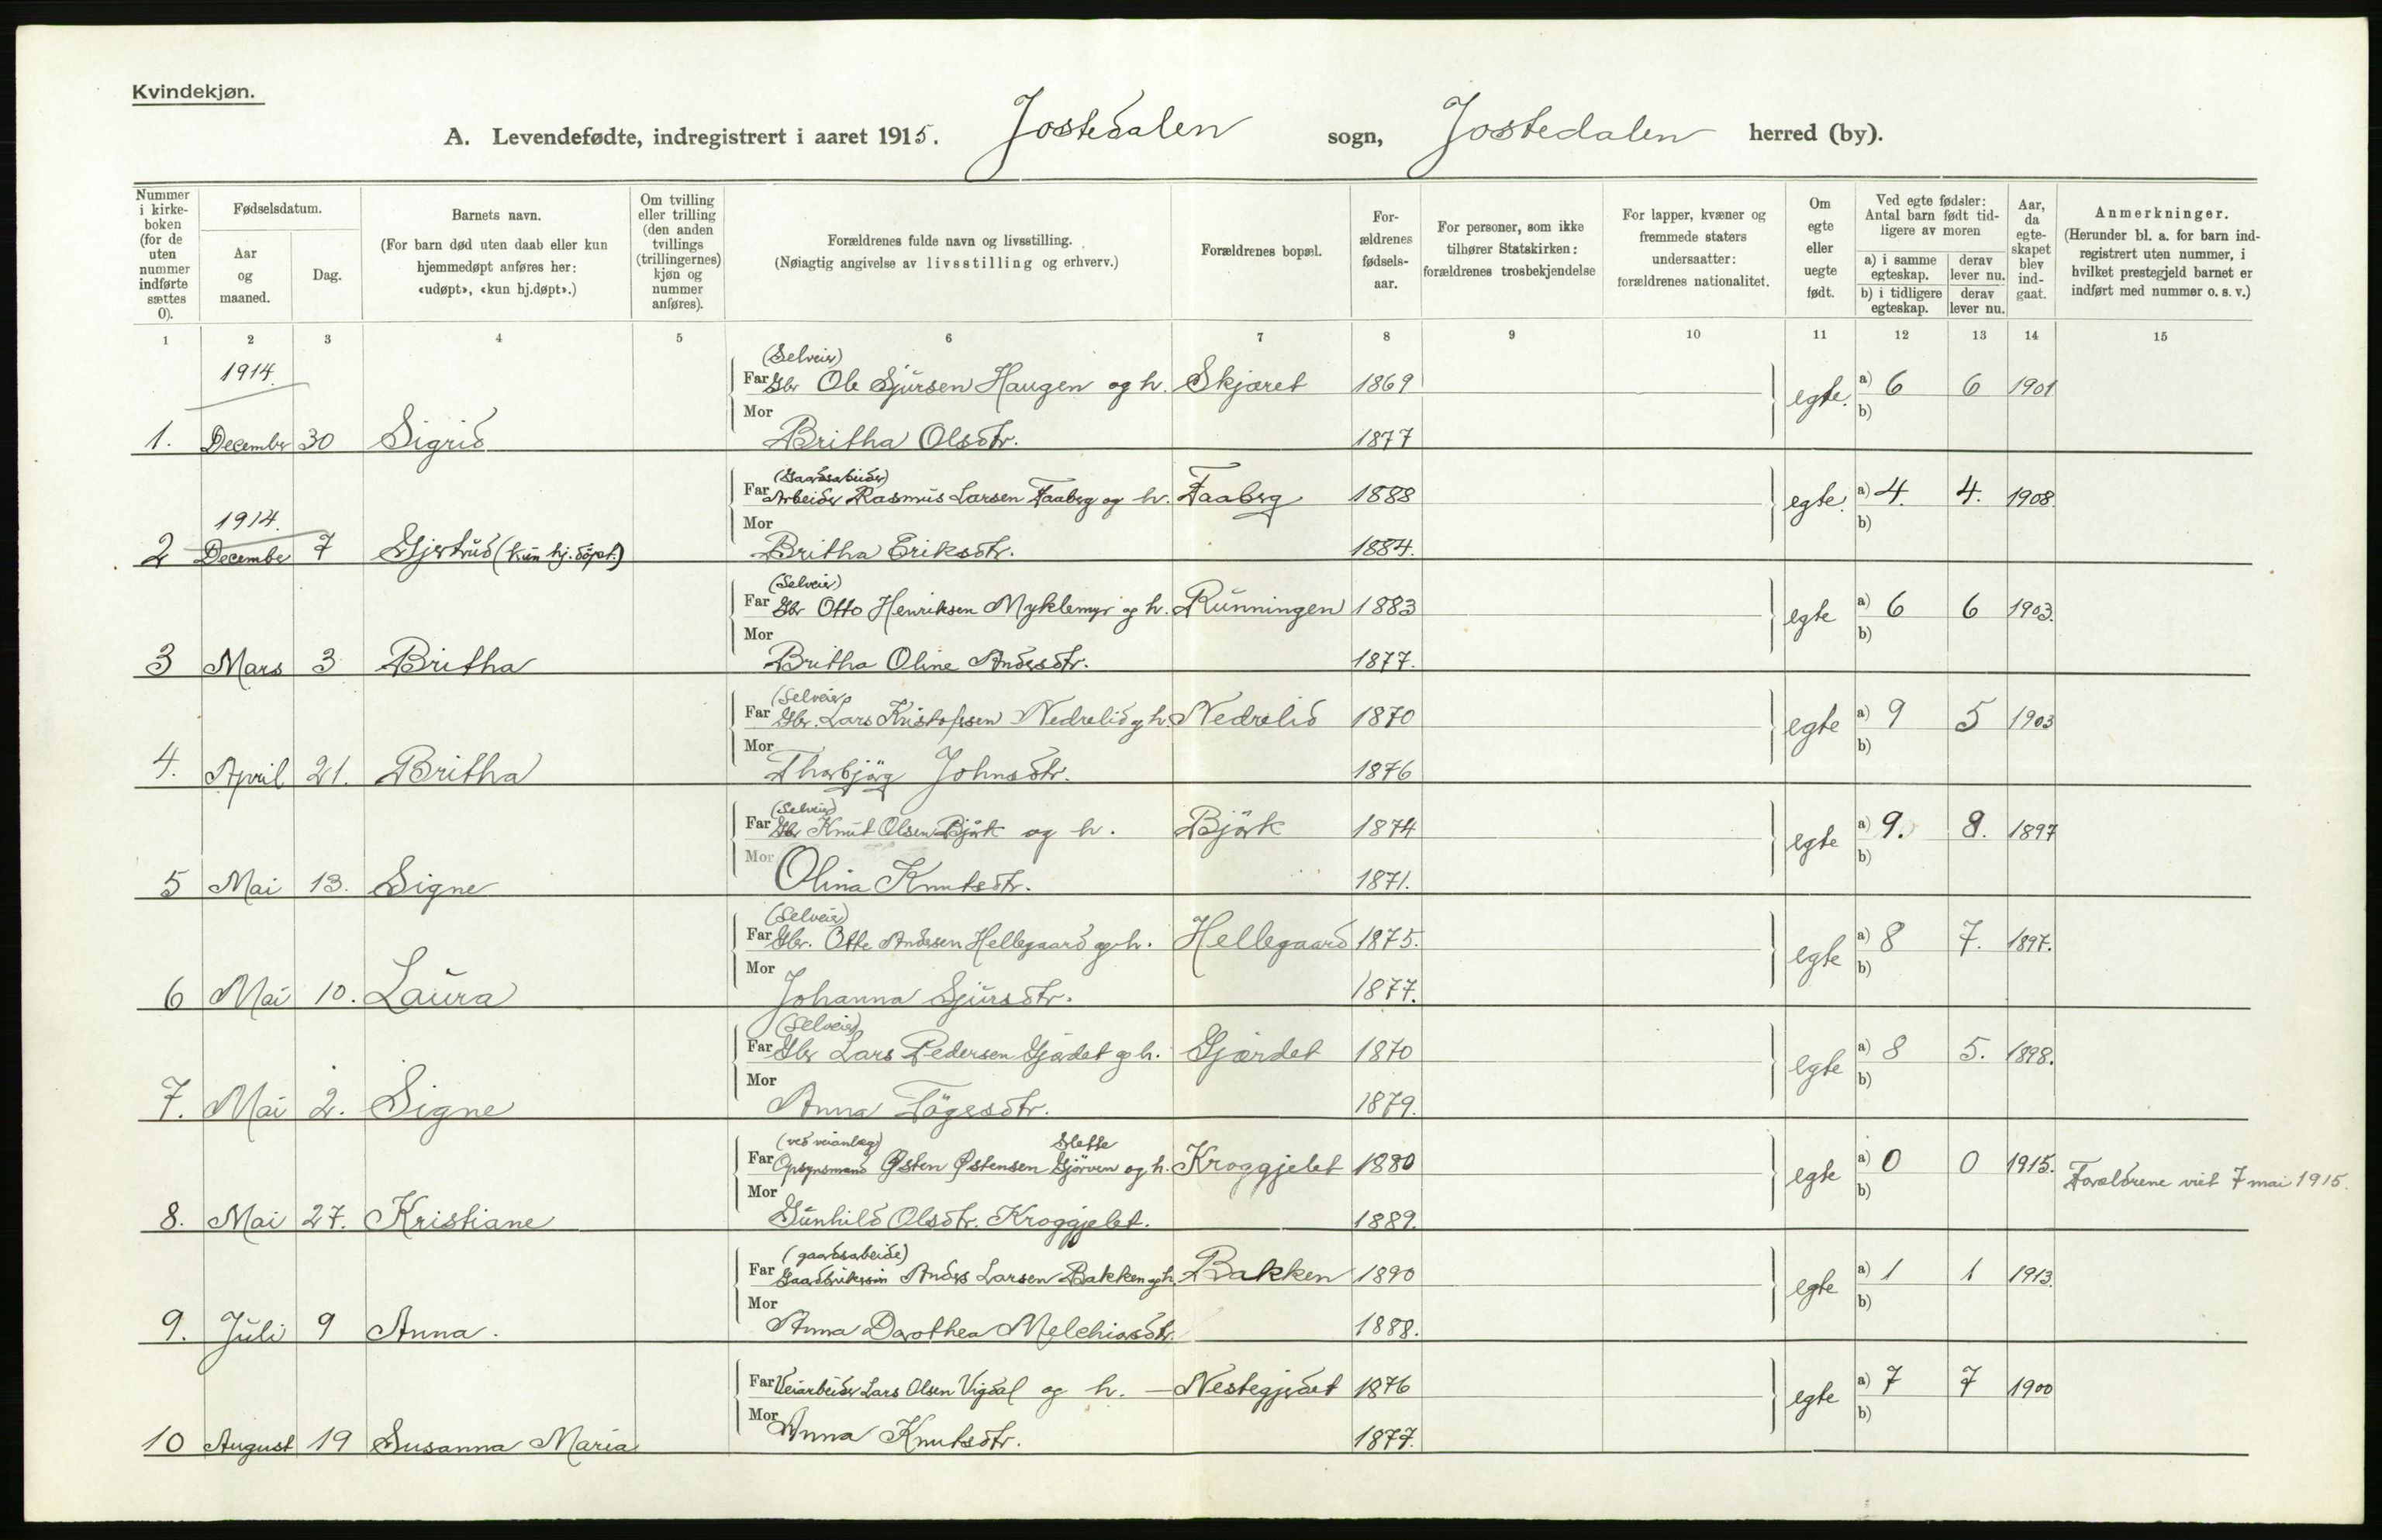 Kvindekjøn.
A. Levendefødte, indregistrert i aaret 1915. Jostedalen sogn, Jostedalen herred (by).
Nummer i kirke-boken (for de uten nummer indførte sættes 0).
Fødselsdatum.
Aar og maaned.
Dag.
Barnets navn.
(For barn død uten daab eller kun hjemmedøpt anføres her: «udøpt», «kun hj.døpt».)
Om tvilling eller trilling (den anden tvillings (trillingernes) kjøn og nummer anføres).
Forældrenes fulde navn og livsstilling.
(Nøiagtig angivelse av livsstilling og erhverv.)
Forældrenes bopæl.
For-ældrenes fødsels-aar.
For personer, som ikke tilhører Statskirken: forældrenes trosbekjendelse
For lapper, kvæner og fremmede staters undersaatter: forældrenes nationalitet.
Om egte eller uegte født.
Ved egte fødsler: Antal barn født tid-ligere av moren
a) i samme egteskap.
derav lever nu.
b) i tidligere egteskap.
derav lever nu.
Aar, da egte-skapet blev ind-gaat.
Anmerkninger.
(Herunder bl. a. for barn ind-registrert uten nummer, i hvilket prestegjeld barnet er indført med nummer o. s. v.)
1 2 3 4 5 6 7 8 9 10 11 12 13 14 15
1914.
(Selveier)
Far Gbr Ole Sjursen Haugen og h. Skjæret 1869 egte. a) 6 6 1901
b)
Mor
1. December 30 Sigrid Britha Olsdtr. 1877
(Gaardsarbeider)
Far Arbeider Rasmus Larsen Faaberg og h. Faaberg 1888 egte. a) 4. 4. 1908.
b)
1914. Mor
2 December 7 Gjertrud (kun hj. döpt.) Britha Eriksdtr. 1884.
(Selveier)
Far Gbr Otto Henriksen Myklemyr og h. Runningen 1883 egte a) 6 6 1903.
b)
Mor
3 Mars 3 Britha Britha Oline Andersdtr. 1877.
(Selveier)
Far Gbr. Lars Kristofersen Nedrelid og h. Nedrelid 1870 egte a) 9 5 1903
b)
Mor
4. April 21. Britha Thorbjörg Johnsdtr. 1876
(Selveier)
Far Gbr Knut Olsen Björk og h. Björk 1874 egte a) 9. 8. 1897
b)
Mor
5 Mai 13. Signe Olina Knutsdtr. 1871.
(Selveier)
Far Gbr. Otte Andersen Hellegaard og h. Hellegaard 1875. egte a) 8 7. 1897.
b)
Mor
6 Mai 10. Laura Johanna Sjursdtr. 1877.
(Selveier)
Far Gbr Lars Pedersen Gjærdet og h. Gjærdet 1870 egte a) 8 5. 1898.
b)
Mor
7. Mai 2. Signe Anna Tögesdtr. 1879.
(ved veianlæg) Slette
Far Opsynsmand Østen Østensen Gjörven og h. Kroggjelet 1880 egte a) 0 0 1915. Forældrene viet 7 mai 1915.
b)
Mor
8. Mai 27. Kristiane Gunhild Olsdtr. Kroggjelet. 1889.
(gaardsarbeide)
Far Gaardbrukersön Anders Larsen Bakken og h. Bakken 1890 egte a) 1 1 1913.
b)
Mor
9. Juli 9 Anna. Anna Dorothea Melchiorsdtr. 1888.
Far Veiarbeider Lars Olsen Vigdal og h. — Nestegjerdet 1876 egte a) 7 7 1900
b)
Mor
10 August 19 Susanna Maria Anna Knutsdtr. 1877.